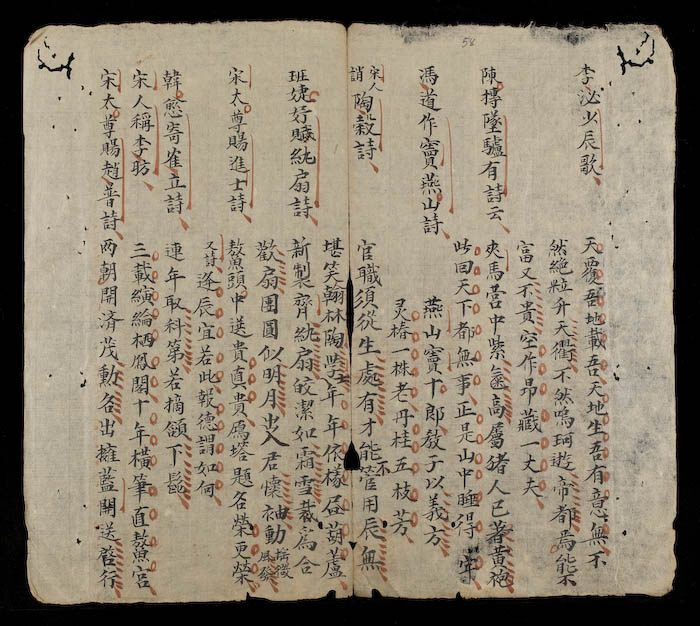 58
李泌少辰歌
天覆吾地載吾天地生吾有意無不
然絶粒升天衢不然鳴珂遊帝都焉能不
富又不貴空作昂藏一丈夫
陳摶墜驢有詩云
夾馬营中紫氣高屬猪人已著黄袍
此回天下都無事正是山中睡得
馮道作竇燕山詩
燕山竇十郎教子以義方
灵椿一株老丹桂五枝芳
宋人誚陶穀詩
官職須從生處有才能不管用辰無
堪笑翰林陶學士年年依樣畫葫蘆
班婕妤賦紈扇詩
新製齊紈扇皎潔如霜雪裁爲合
歡扇團圓似明月出入君懷袖動摇微風發
宋太尊賜進士詩
鰲頭中送貴真貴鴈塔題名榮更榮
又詩逢辰宜若此報德謂如何
韓愈寄崔立詩
連年取科第若摘頷下髭
宋人稱李昉
三載演綸栖鳳閣十年横筆直鰲宫
宋太尊賜趙普詩
兩朝開済茂勲名出擁藍關送啓行